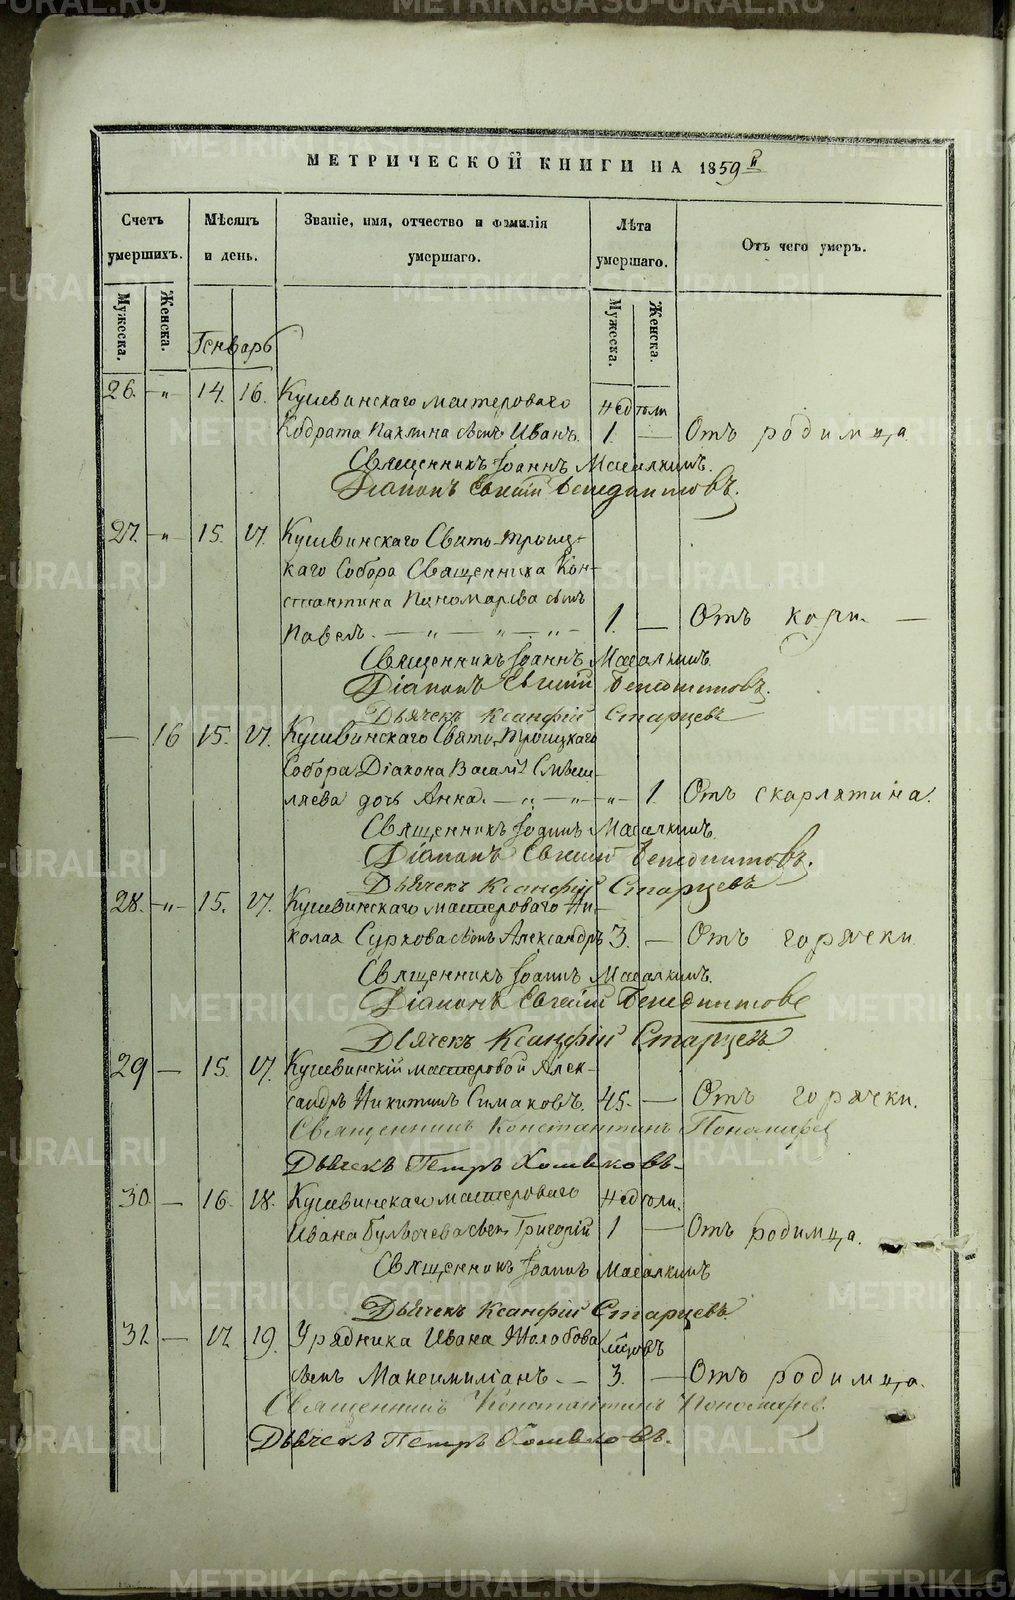 МЕТРИЧЕСКОЙ КНИГИ НА 1859й
Счетъ умершихъ.
Мѣсяцъ и день.
Званіе, имя, отчество и фамилія умершаго.
Лѣта умершаго.
Отъ чего умеръ.
Мужеска.
Женска.
Мужеска.
Женска.
Генварь
26. -"- 14. 16. Кушвинскаго мастероваго недѣли
Кодрата Пахлина сынъ Иванъ. 1. — Отъ родимца.
Священникъ Іоаннъ Масалкинъ.
Діаконъ Евгеній Бенедиктовъ.
27. -"- 15. 17. Кушвинскаго Свято-Троиц-
каго Собора Священника Кон-
стантина Пономарева сынъ
Павелъ. — " — " — " — 1. — Отъ кори. —
Священникъ Іоаннъ Масалкинъ.
Діаконъ Евгеній Бенедиктовъ.
Дьячекъ Ксанфій Старцевъ
— 16 15. 17. Кушвинскаго Свято-Троицкаго
Собора Діакона Василія
дочь Анна. — " — " — " — 1. Отъ скарлятина.
Священникъ Іоаннъ Масалкинъ.
Діаконъ Евгеній Бенедиктовъ.
Дьячекъ Ксанфій Старцевъ
28. -"- 15. 17. Кушвинскаго мастероваго Ни-
колая Суркова сынъ Александръ 3. — Отъ горячки
Священникъ Іоаннъ Масалкинъ.
Діаконъ Евгеній Бенедиктовъ
Дьячекъ Ксанфій Старцевъ
29 — 15. 17. Кушвинскій мастеровой Алек-
сандръ Никитинъ Симаковъ. 45. — Отъ горячки.
Священникъ Константинъ Пономарев
Дьячекъ Петръ Хомяковъ.
30. — 16. 18. Кушвинскаго мастероваго недѣли.
Ивана сынъ Григорій 1 — Отъ родимца.
Священникъ Іоаннъ Масалкинъ
Дьячекъ Ксанфій Старцевъ.
31. — 17. 19. Урядника Ивана Жолобова мѣсяцъ
сынъ Максимиліанъ. — 3. — Отъ родимца.
Священникъ Константинъ Пономарев.
Дьячекъ Петръ Хомяковъ.
METRIKI.GASO-URAL.RU